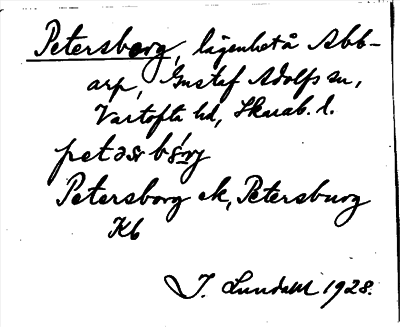 Petersborg, lägenhet å Abb-
arp, Gustaf Adolfs sn,
Vartofta hd, Skarab. l.
Petersborg ek, Petersburg
Kb
J. Lundahl 1928.